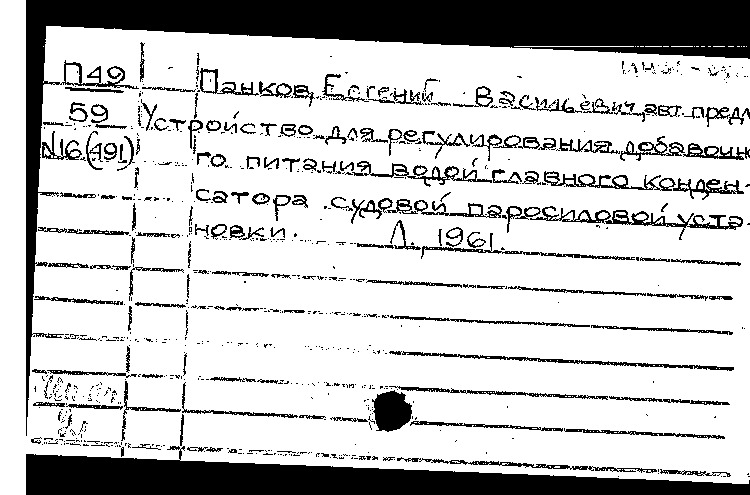 П49
59
N16(491)
Панков, Евгений Васильевич, авт. предл
Устройство для регулирования добавочно
го питания водой главного конден-
сатора судовой паросиловой уста-
новки. Л., 1961.
2